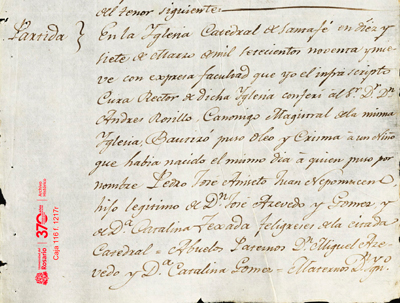 al tenor siguiente
Partida } En la Yglecia Catedral de Santafé en diez y
siete de Marzo de mil setecientos noventa y nue-
ve con expresa facultad que yo el infraescripto
Cura Rector de dicha Yglecia conferí al Sr. Dr. Dn.
Andres Rosillo, Canonigo Magistral de la misma
Yglecia, Bautizó puso Oleo y Crisma à un Niño
que habia nacido el mismo dia à quien puso por
nombre Pedro Jose Aniseto Juan Nepomucen
hijo legitimo de Dn. José Azevedo y Gomez y
de Da. Catalina Texada feligreses de la citada
Catedral = Abuelos Paternos Dn. Miguel Aze-
vedo y Da. Catalina Gomez = Maternos Dn. Ygn.
Rosario
370
Archivo
Histórico
Caja 116 f. 1217r